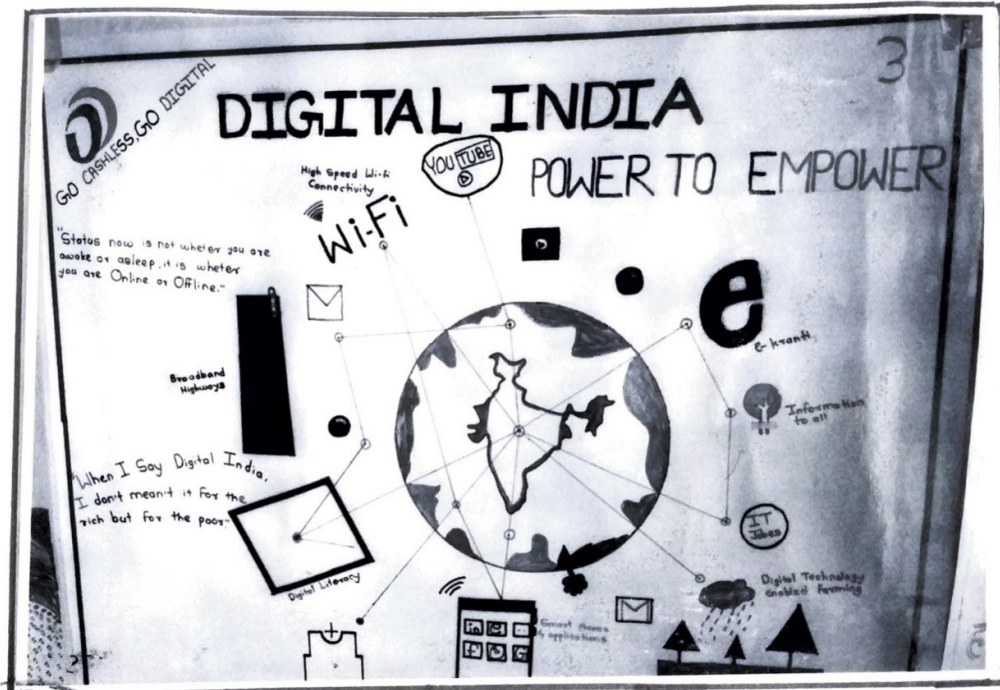 3
GO CASHLESS, GO DIGITAL
DIGITAL INDIA
POWER TO EMPOWER
YOU TUBE
High Speed Wi-Fi
Connectivity
Wi-Fi
"Status now is not wheter you are
awake or asleep, it is wheter
you are Online or Offline."
e
e-kranti
Broadband
Highways
Information
to all
"When I Say Digital India,
I don't mean't it for the
rich but for the poor"
IT
Jobes
Digital Literacy
Digital Technology
enabled Farming
Smart Phones
& applications
in
f
G